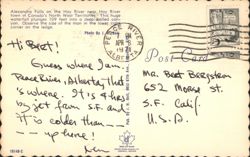 Alexandra Falls on the Hay River near Hay River
town of Canada's North West Territories. The
waterfall plunges 109 feet into a steep-walled can-
yon. Observe the size of the man in the lower right
corner on the ledge.
Hi Bert!
Guess where I am.
Peace River, Alberta, that
's where. It is 4 hrs
by jet from S.F. and
it is colder than —
— — up here!
PEACE RIVER
ALBERTA
Post Card
Mr. Bert Bergstrom
652 Morse St.
S.F. Calif.
U.S.A.